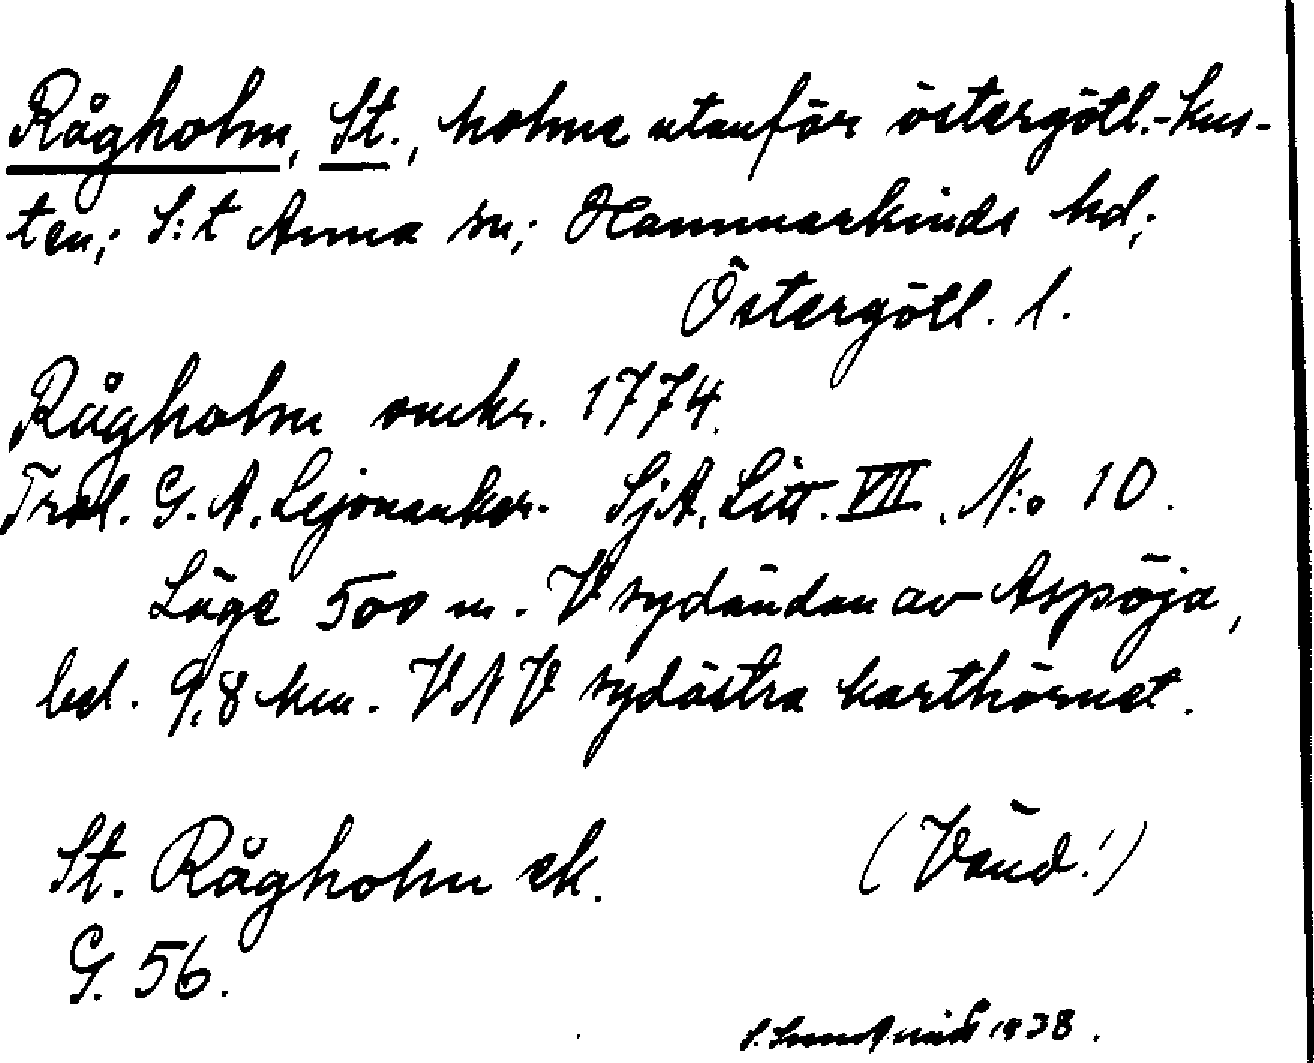 Rågholm, St., holme utanför östergötl.-kus-
ten; S:t Anna sn; Hammarkinds hd;
Östergötl. l.
Rågholm omkr. 1774.
G. A. Lejonanker. SjA. Litt. VII. N:o 10.
Läge 500 m. V sydändan av Aspöja,
bel. 9,8 km. VNV sydöstra karthörnet.
St. Rågholm ek. (Vänd!)
G. 56.
1938.